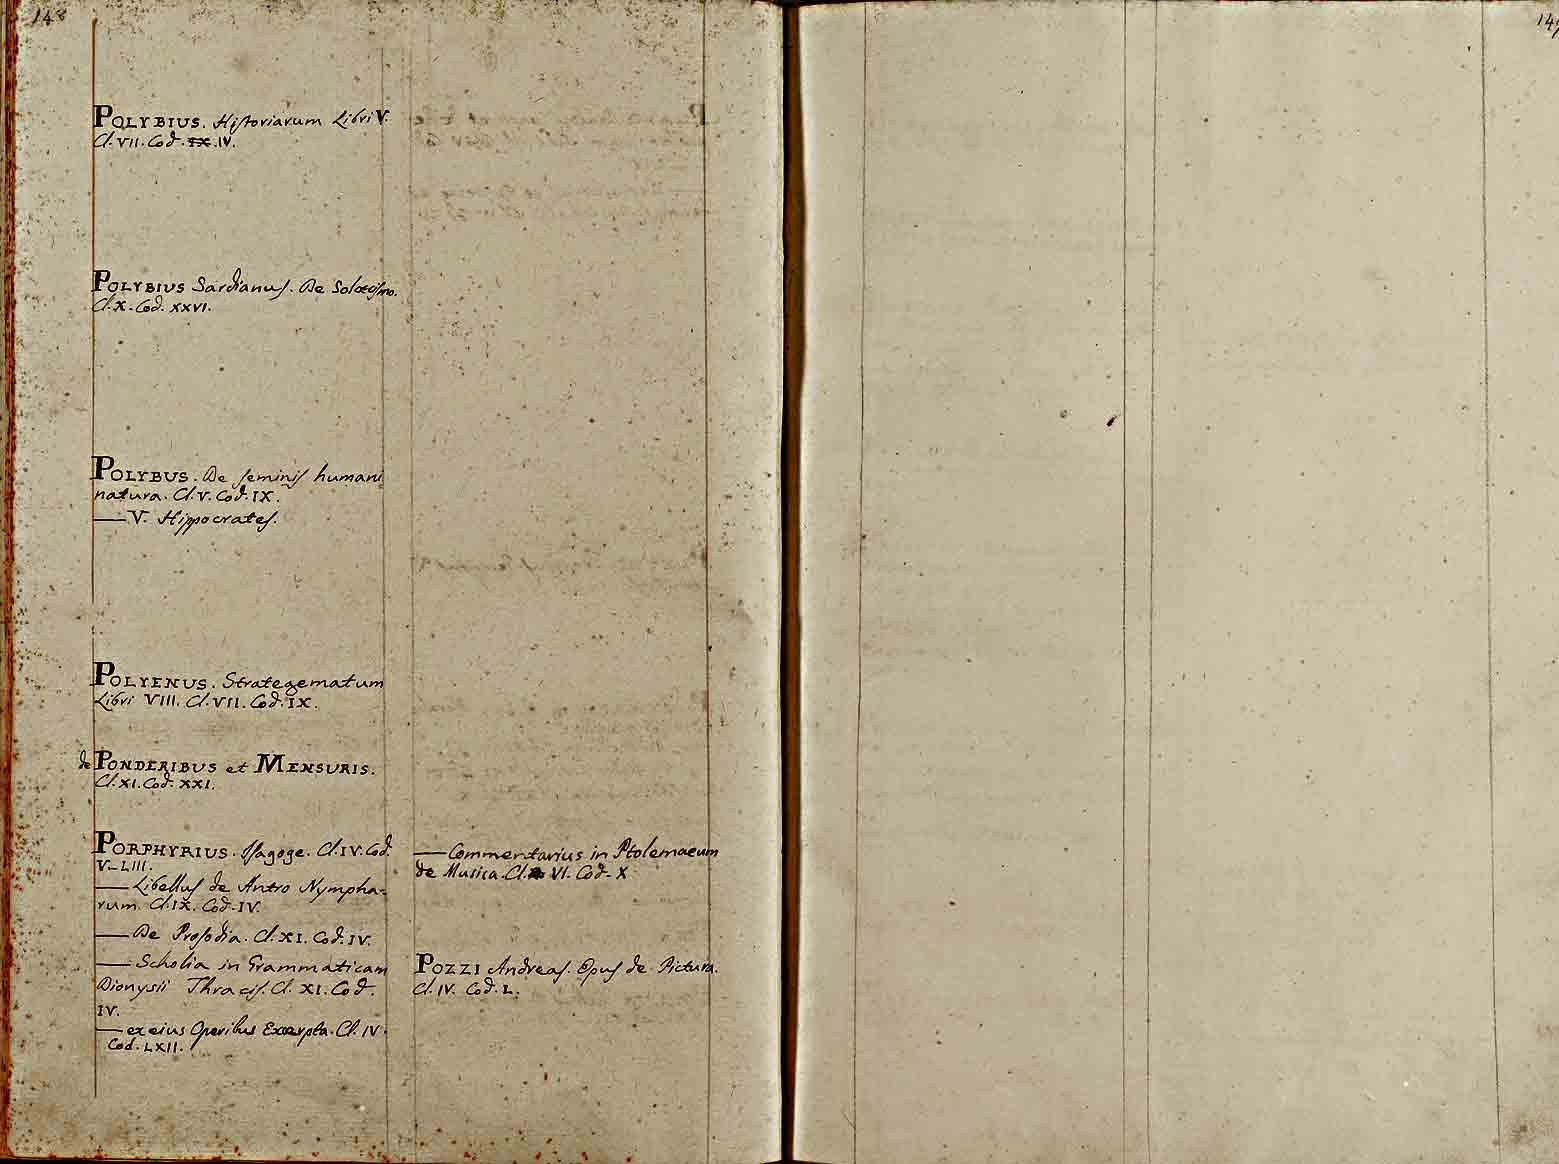 148
POLYBIUS. Historiarum Libri V.
Cl. VII. Cod. IX. IV.
POLYBIUS Sardianus. De Solœcismo.
Cl. X. Cod. XXVI.
POLYBUS. De seminis humani
natura. Cl. V. Cod. IX.
— V. Hippocrates.
POLYENUS. Strategematum
Libri VIII. Cl. VII. Cod. IX.
de PONDERIBUS et MENSURIS.
Cl. XI. Cod. XXI.
PORPHYRIUS. Isagoge. Cl. IV. Cod.
V-LIII.
— Libellus de Antro Nympha-
rum. Cl. IX. Cod. IV.
— De Prosodia. Cl. XI. Cod. IV.
— Scholia in Grammaticam
Dionysii Thracis. Cl. XI. Cod.
IV.
— ex eius Operibus Excerpta. Cl. IV.
Cod. LXII.
— Commentarius in Ptolemaeum
de Musica. Cl. VI. Cod. X
POZZI Andreas. Opus de Pictura.
Cl. IV. Cod. L.
149